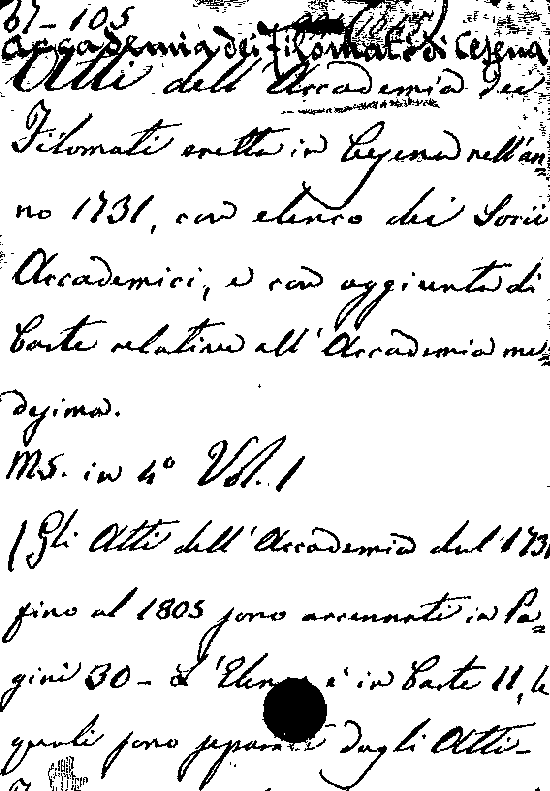 67-105
Accademia dei Filomati di Cesena
Atti dell'Accademia dei
Filomati eretta in Cesena nell'an=
no 1731, con elenco dei Socii
Accademici, e con aggiunta di
Carte relative all'Accademia me=
desima.
MS. in 4º Vol. 1
(Gli Atti dell'Accademia dal 1731
fino al 1805 sono accennati in Pa=
gine 30 - L'Elenco è in Carte 11, le
quali sono separate dagli Atti -